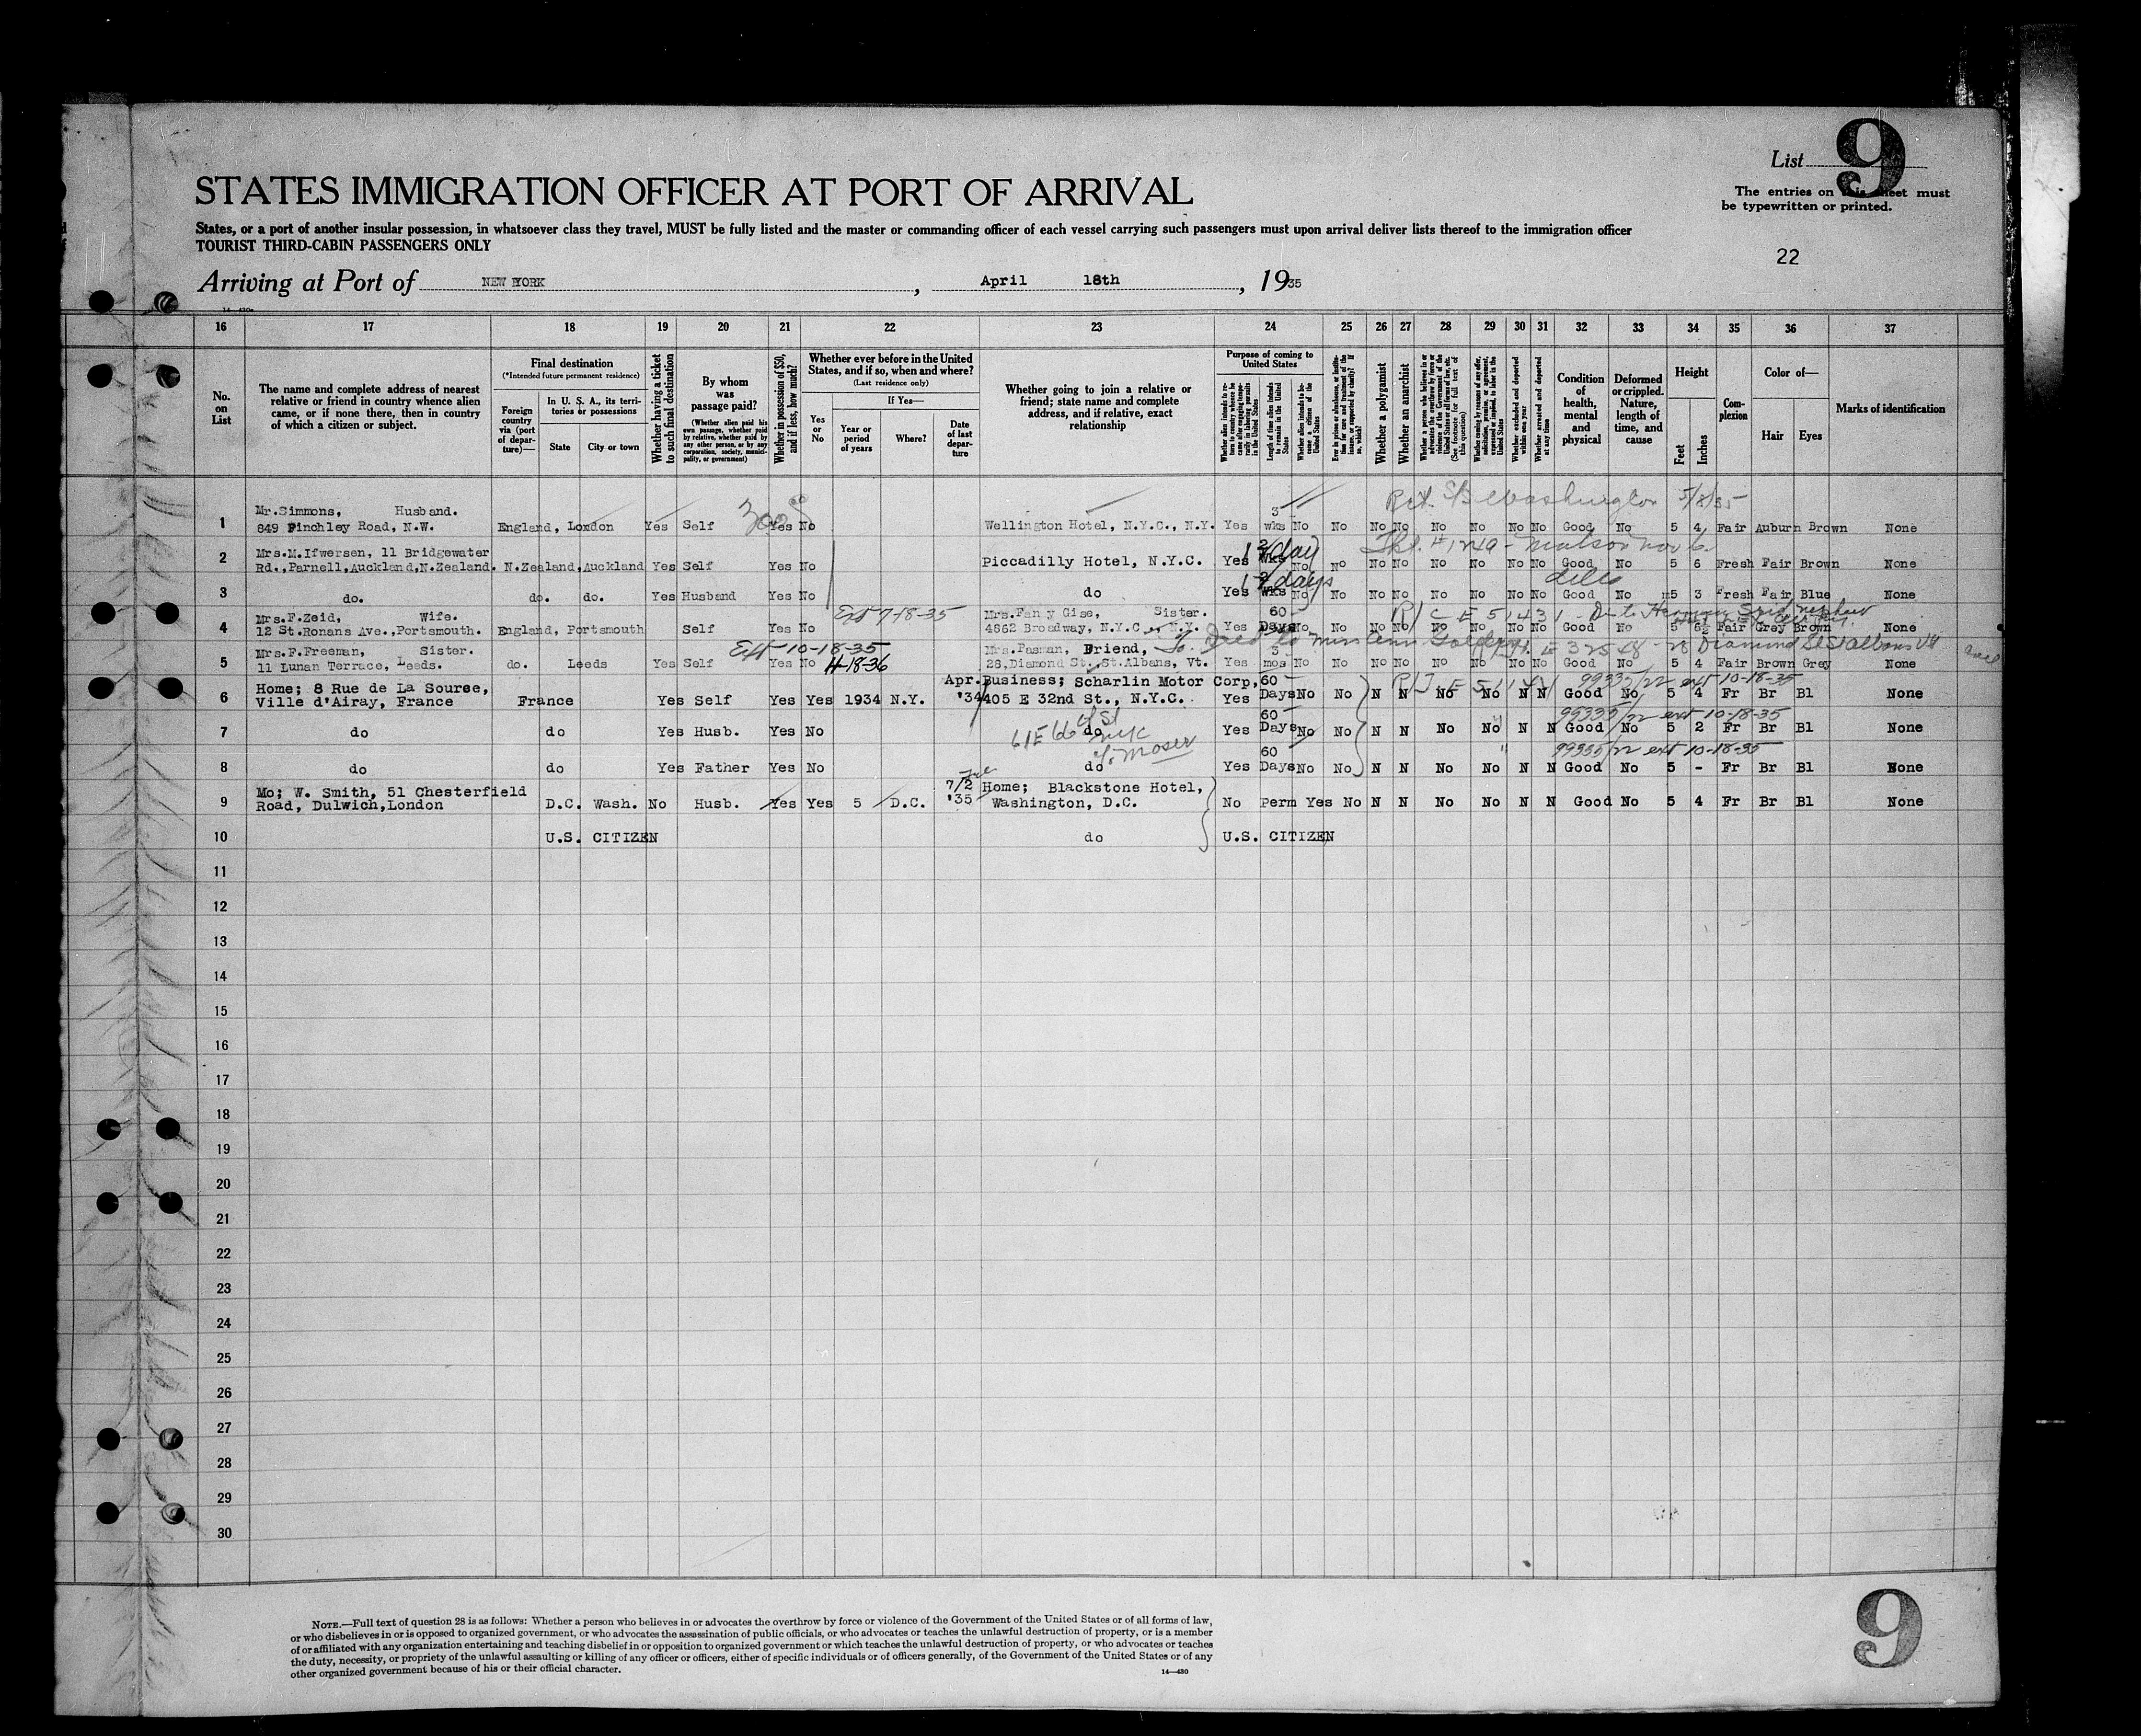 List 9
STATES IMMIGRATION OFFICER AT PORT OF ARRIVAL
The entries on this sheet must
be typewritten or printed.
States, or a port of another insular possession, in whatsoever class they travel, MUST be fully listed and the master or commanding officer of each vessel carrying such passengers must upon arrival deliver lists thereof to the immigration officer
TOURIST THIRD-CABIN PASSENGERS ONLY
22
Arriving at Port of NEW YORK, April 18th, 1935
16 17 18 19 20 21 22 23 24 25 26 27 28 29 30 31 32 33 34 35 36 37
No. on List
The name and complete address of nearest relative or friend in country whence alien came, or if none there, then in country of which a citizen or subject.
Final destination
(*Intended future permanent residence)
Foreign country via (port of departure)—
In U. S. A., its territories or possessions
State
City or town
Whether having a ticket to such final destination
By whom was passage paid?
(Whether alien paid his own passage, whether paid by relative, whether paid by any other person, or by any corporation, society, municipality, or government)
Whether in possession of $50, and if less, how much?
Whether ever before in the United States, and if so, when and where?
(Last residence only)
Yes or No
If Yes—
Year or period of years
Where?
Date of last departure
Whether going to join a relative or friend; state name and complete address, and if relative, exact relationship
Purpose of coming to United States
Length of time alien intends to remain in the United States
Whether alien intends to become a citizen of the United States
Whether a polygamist
Whether an anarchist
Whether excluded and deported within one year
Whether arrested and deported at any time
Condition of health, mental and physical
Deformed or crippled. Nature, length of time, and cause
Height
Feet
Inches
Complexion
Color of—
Hair
Eyes
Marks of identification
Washington 5/8/35
Mr.Simmons, Husband. 3
1 849 Finchley Road, N.W. England, London Yes Self Yes No Wellington Hotel, N.Y.C., N.Y. Yes wks No No No No No No No No Good No 5 4 Fair Auburn Brown None
Mrs.M.Ifwersen, 11 Bridgewater
2 Rd.,Parnell,Auckland,N.Zealand. N.Zealand,Auckland Yes Self Yes No Piccadilly Hotel, N.Y.C. Yes wks No No No No No No No No Good No 5 6 Fresh Fair Brown None
3 do. do. do. Yes Husband Yes No do Yes wks No No No No No No No No Good No 5 3 Fresh Fair Blue None
Mrs.F.Zeid, Wife. Ext 7-18-35 Sister. 60
4 12 St.Ronans Ave.,Portsmouth. England, Portsmouth Self Yes No 4862 Broadway, N.Y.C. N.Y. Yes Days No No No No No No No No Good No 5 6½ Fair Grey Brown None
Mrs.F.Freeman, Sister. Ext 10-18-35 Mrs.Pasman, Friend, 3
5 11 Lunan Terrace, Leeds. do. Leeds Yes Self Yes No 4-18-36 28,Diamond St.,St.Albans, Vt. Yes mos No No No No No No No No Good No 5 4 Fair Brown Grey None
Home; 8 Rue de La Sourse, Apr. Business; Scharlin Motor Corp, 60 99335/22 ext 10-18-35
6 Ville d'Airay, France France Yes Self Yes Yes 1934 N.Y. '34 405 E 32nd St., N.Y.C. Yes Days No No N N No No N N Good No 5 4 Fr Br Bl None
60 99335/22 ext 10-18-35
7 do do Yes Husb. Yes No do Yes Days No No N N No No N N Good No 5 2 Fr Br Bl None
61 E 66 St
NYC
c/o Moser
60 99335/22 ext 10-18-35
8 do do Yes Father Yes No do Yes Days No No N N No No N N Good No 5 - Fr Br Bl None
Mo; W. Smith, 51 Chesterfield 7/2 Home; Blackstone Hotel,
9 Road, Dulwich,London D.C. Wash. No Husb. Yes Yes 5 D.C. '35 Washington, D.C. No Perm Yes No N N No No N N Good No 5 4 Fr Br Bl None
10 U.S. CITIZEN do U.S. CITIZEN
11
12
13
14
15
16
17
18
19
20
21
22
23
24
25
26
27
28
29
30
NOTE.—Full text of question 28 is as follows: Whether a person who believes in or advocates the overthrow by force or violence of the Government of the United States or of all forms of law,
or who disbelieves in or is opposed to organized government, or who advocates the assassination of public officials, or who advocates or teaches the unlawful destruction of property, or is a member
of or affiliated with any organization entertaining and teaching disbelief in or opposition to organized government or which teaches the unlawful destruction of property, or who advocates or teaches
the duty, necessity, or propriety of the unlawful assaulting or killing of any officer or officers, either of specific individuals or of officers generally, of the Government of the United States or of any
other organized government because of his or their official character.
14—430
9